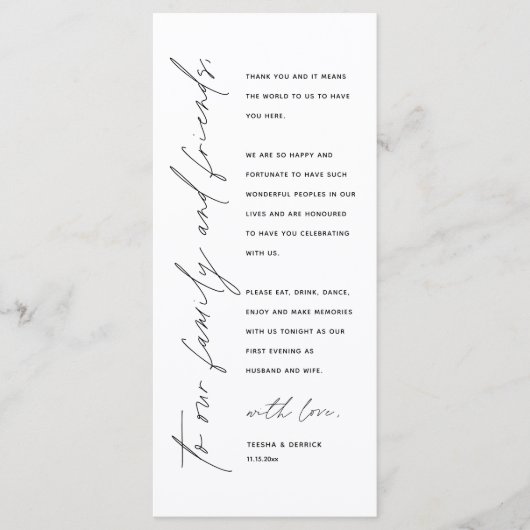 to our family and friends,
THANK YOU AND IT MEANS
THE WORLD TO US TO HAVE
YOU HERE.
WE ARE SO HAPPY AND
FORTUNATE TO HAVE SUCH
WONDERFUL PEOPLES IN OUR
LIVES AND ARE HONOURED
TO HAVE YOU CELEBRATING
WITH US.
PLEASE EAT, DRINK, DANCE,
ENJOY AND MAKE MEMORIES
WITH US TONIGHT AS OUR
FIRST EVENING AS
HUSBAND AND WIFE.
with love,
TEESHA & DERRICK
11.15.20xx